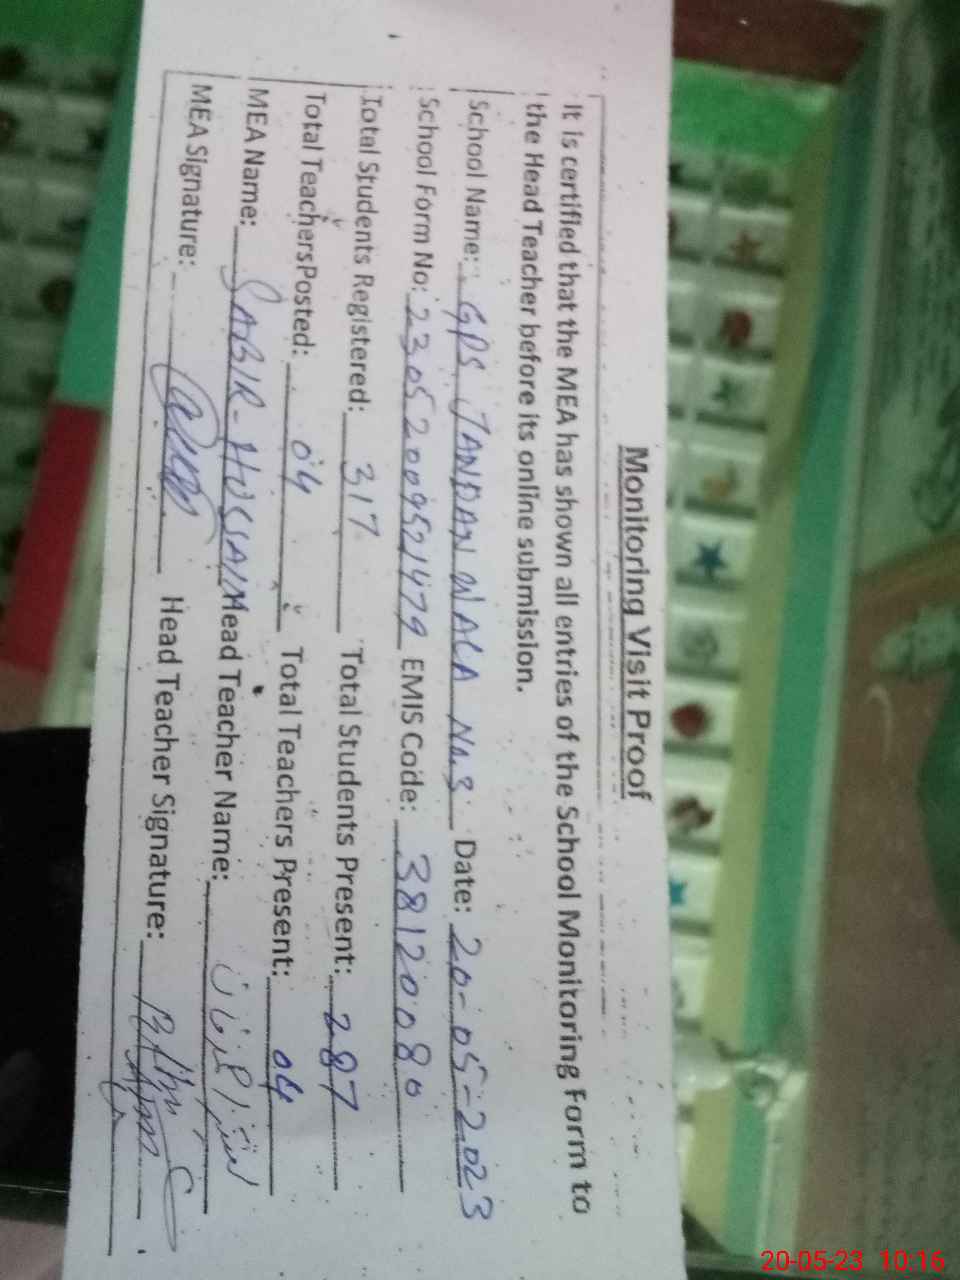 Monitoring Visit Proof
It is certified that the MEA has shown all entries of the School Monitoring Form to
the Head Teacher before its online submission.
School Name: GPS JANDAN WALA No.3 Date: 20-05-2023
School Form No: 23052009521479 EMIS Code: 38120080
Total Students Registered: 317 Total Students Present: 287
Total TeachersPosted: 04 Total Teachers Present: 04
MEA Name: SABIR-HUSSAIN Head Teacher Name:
MEA Signature: Head Teacher Signature:
20-05-23 10:16